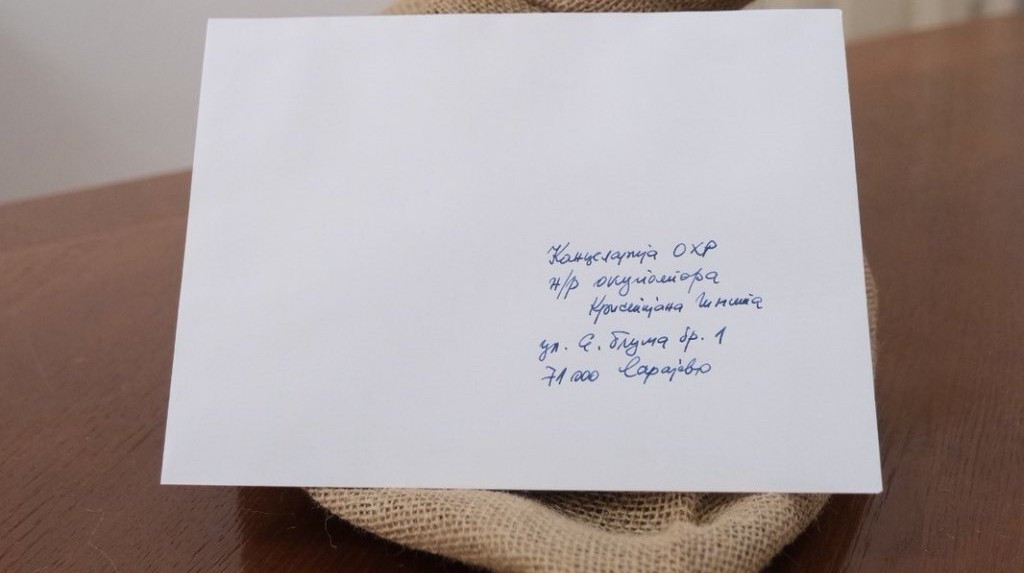 Канцеларија ОХР
н/р окупатора
Кристијана Шмита
ул. Е. Блума бр. 1
71 000 Сарајево